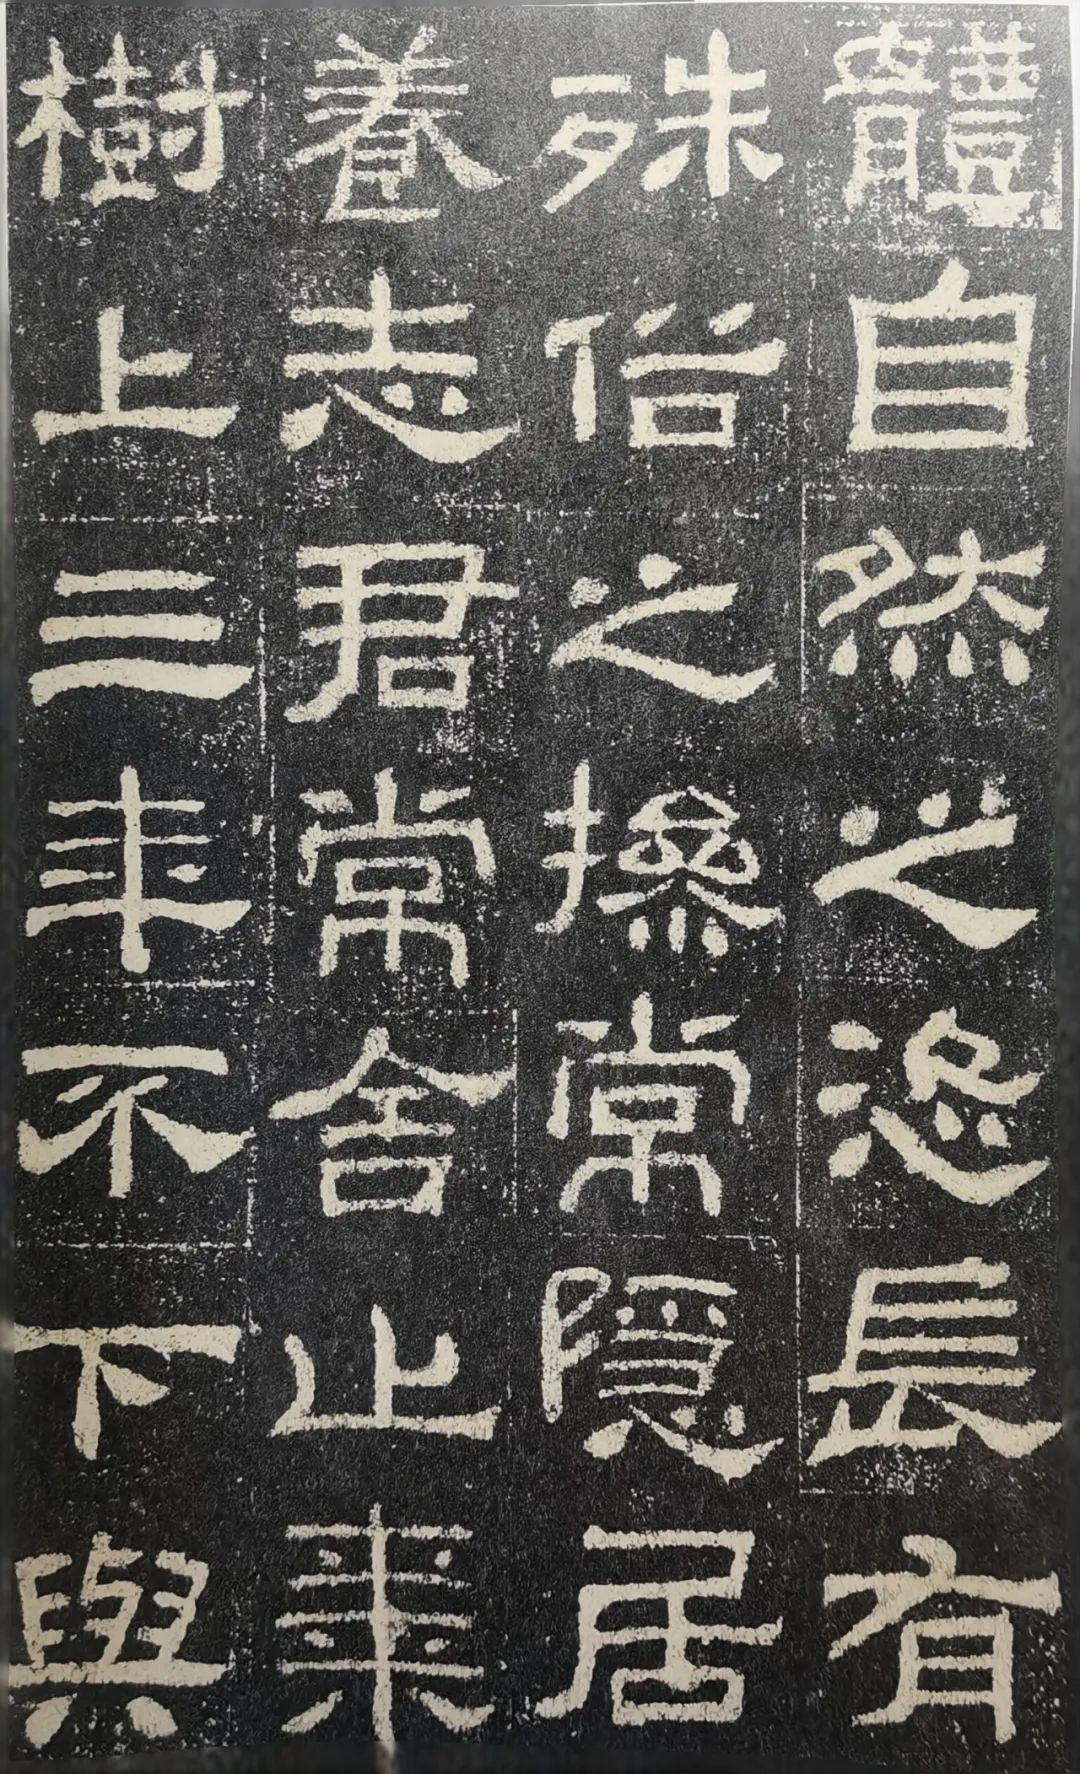 體自然之恣長有
殊俗之操常隱居
養志君常舍止棗
樹上三年不下與